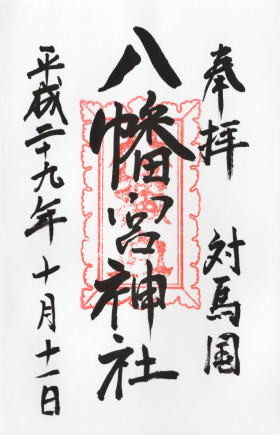 奉拝 対馬国
八幡宮神社
平成二十九年十月十一日